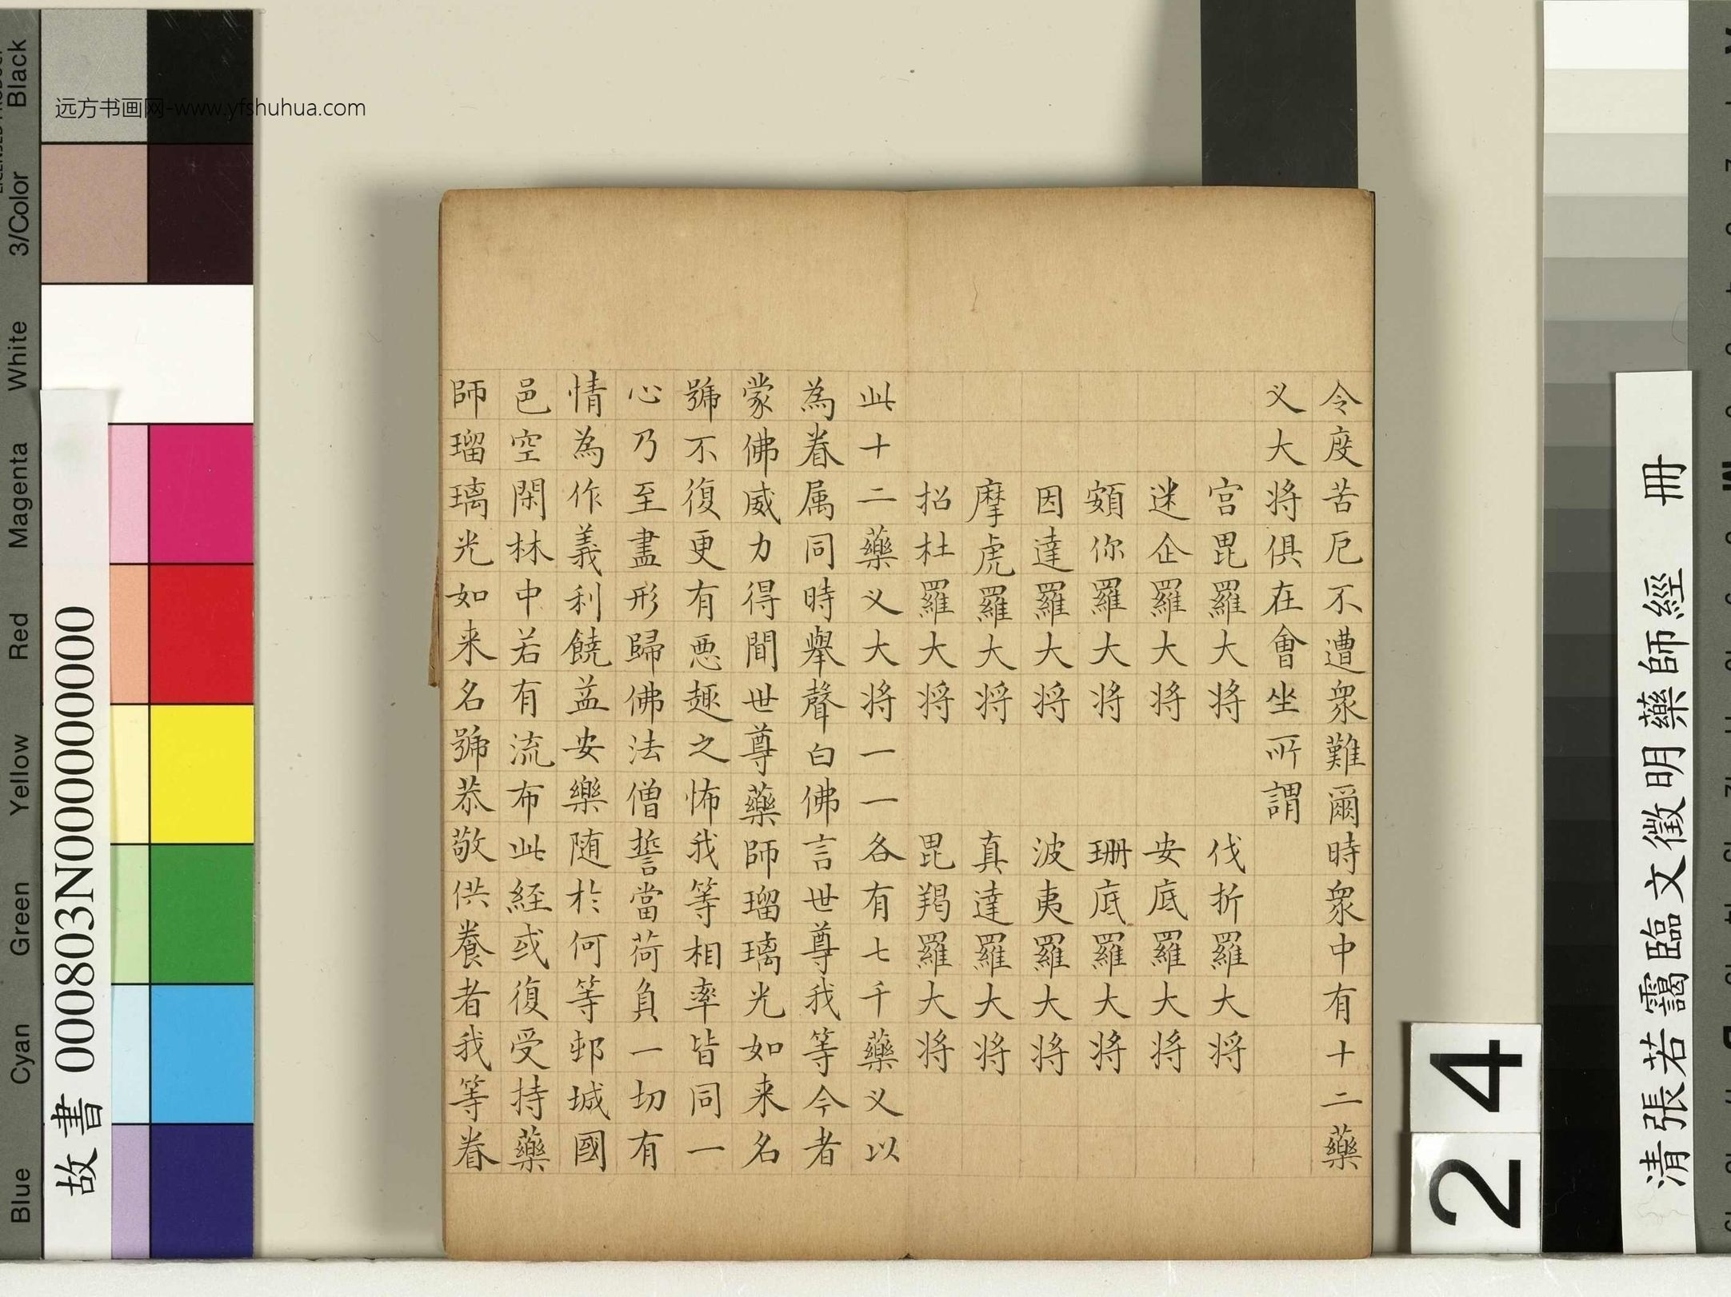 令度苦厄不遭衆難爾時衆中有十二藥
义大将俱在會坐所謂
宫毘羅大将 伐折羅大将
迷企羅大将 安底羅大将
頞你羅大将 珊底羅大将
因達羅大将 波夷羅大将
摩虎羅大将 真達羅大将
招杜羅大将 毘羯羅大将
此十二藥义大将一一各有七千藥义以
為眷属同時舉聲白佛言世尊我等今者
蒙佛威力得聞世尊藥師瑠璃光如来名
號不復更有悪趣之怖我等相率皆同一
心乃至盡形歸佛法僧誓當荷負一切有
情為作義利饒益安樂随於何等邨城國
邑空閑林中若有流布此経或復受持藥
師瑠璃光如来名號恭敬供養者我等眷
清張若靄臨文徵明藥師經 冊
24
故書 000803N000000000
远方书画网-www.yfshuhua.com
Black
3/Color
White
Magenta
Red
Yellow
Green
Cyan
Blue